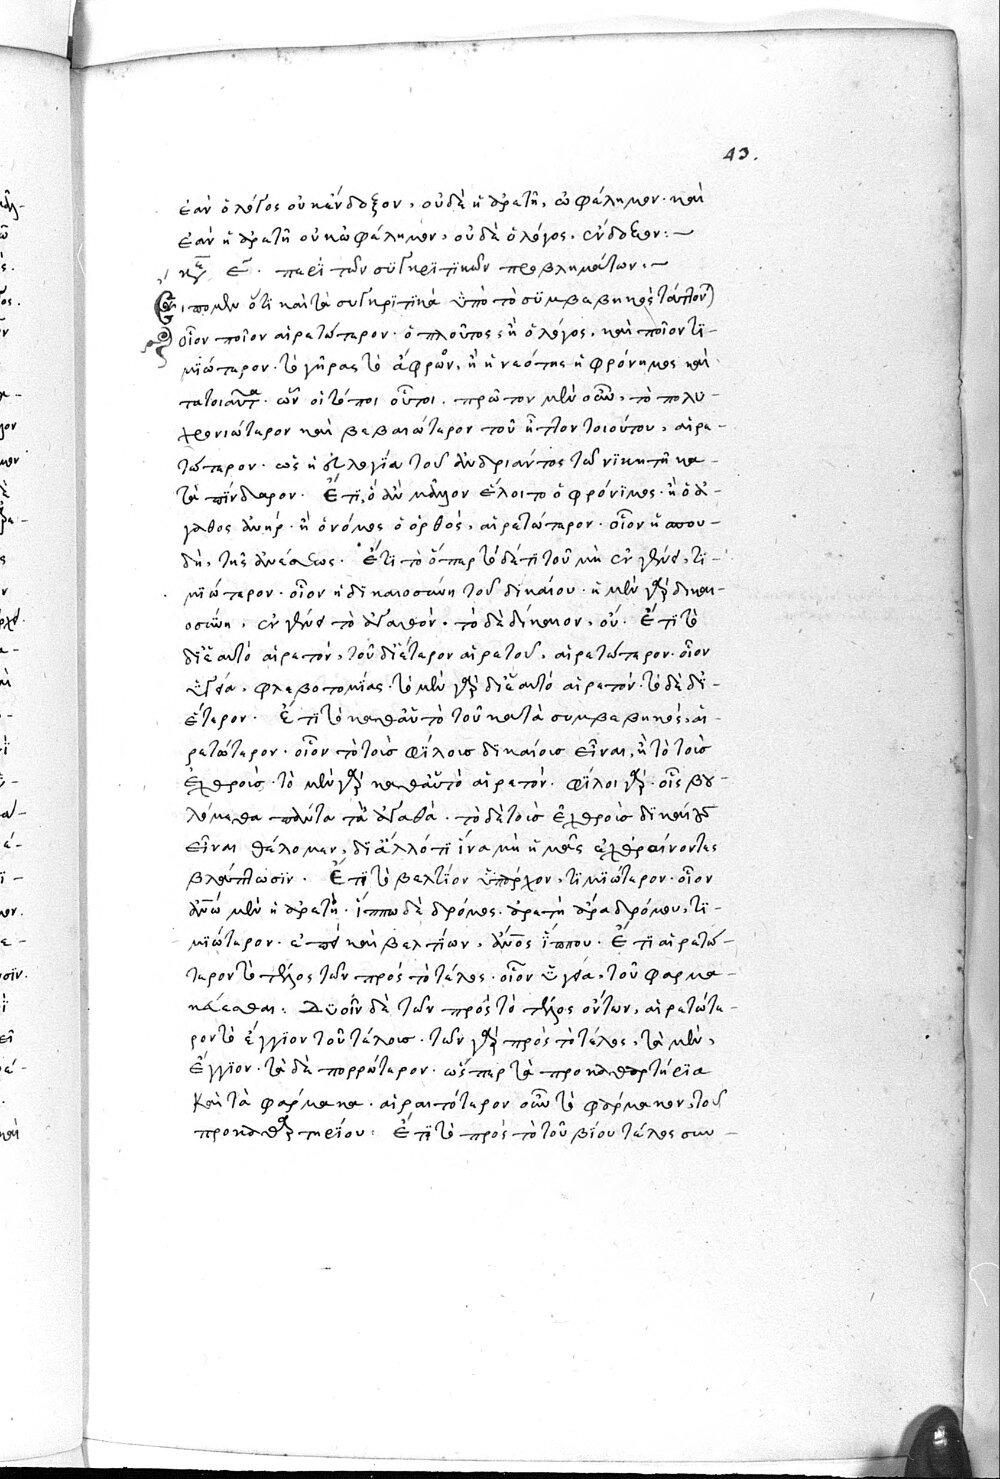 43.
ἐὰν ὁ λόγος οὐκ ἔνδοξον, οὐδὲ ἡ ἀρετὴ, ὠφέλημον· καὶ
ἐὰν ἡ ἀρετὴ οὐκ ὠφέλημον, οὐδὲ ὁ λόγος, ἔνδοξον:~
κεφ ε. περὶ τῶν συγκριτικῶν προβλημάτων.~
εἴπομεν ὅτι καὶ τὰ συγκριτικὰ ὑπὸ τὸ συμβεβηκὸς τάττον)
οἷον ποῖον αἱρετώτερον· ὁ πλοῦτος, ἢ ὁ λόγος, καὶ ποῖον τι-
μιώτερον· τὸ γῆρας τὸ ἄφρον, ἢ ἡ νεότης ἡ φρόνημος καὶ
τὰ τοιαῦτα· ὧν οἱ τόποι οὗτοι. πρῶτον μὲν οὖν, τὸ πολυ-
χρονιώτερον καὶ βεβαιώτερον τοῦ ἧττον τοιούτου, αἱρε-
τώτερον· ὡς ἡ εὐλογία τοῦ ἀνδριάντος τῶ νικητῆ κα-
τὰ πίνδαρον. Ἔτι, ὃ ἂν μᾶλλον ἕλοιτο ὁ φρόνιμος· ἢ ὁ ἀ-
γαθος ἀνήρ· ἢ ὁ νόμος ὁ ὀρθός, αἱρετώτερον· οἷον ἡ σπου-
δὴ, τῆς ἀνέσεως. Ἔτι τὸ ὅπερ τόδε τι τοῦ μὴ ἐν γένει, τι-
μιώτερον· οἷον ἡ δικαιοσύνη τοῦ δικαίου· ἡ μὲν γὰρ δικαι-
οσύνη, ἐν γένει τὸ ἀγαθόν· τὸ δὲ δίκαιον, οὔ. Ἔτι τὸ
δι' ἑαυτὸ αἱρετόν, τοῦ δι' ἕτερον αἱρετοῦ, αἱρετώτερον· οἷον
ὑγεία, φλεβοτομίας· τὸ μὲν γὰρ δι' ἑαυτὸ αἱρετόν· τὸ δὲ δι'
ἕτερον. Ἔτι τὸ καθ' αὑτὸ τοῦ κατὰ συμβεβηκός, αἱ-
ρετώτερον· οἷον τὸ τοὺς φίλους δικαίους εἶναι, ἢ τὸ τοὺς
ἐχθρούς· τὸ μὲν γὰρ καθ' αὑτὸ αἱρετόν· φίλοι γὰρ· οἷς βου-
λόμεθα πάντα τὰ ἀγαθά· τὸ δὲ τοὺς ἐχθροὺς δικαίους
εἶναι θέλομεν, δι' ἄλλό τι ἵνα μὴ ἡμᾶς ἐχθραίνοντες
βλάπτωσιν. Ἔτι τὸ βελτίον ὑπάρχον, τιμιώτερον· οἷον
ἀνῶ μὲν ἡ ἀρετή· ἵππω δὲ δρόμος· ἀρετὴ ἄρα δρόμου, τι-
μιώτερον· ἐπεὶ καὶ βελτίων, ἀνος ἵππου. Ἔτι αἱρετώ-
τερον τὸ τέλος τῶν πρὸς τὸ τέλος· οἷον ὑγεία, τοῦ φαρμα-
κεύεσθαι: Δυοῖν δὲ τῶν πρὸς τὸ τέλος ὄντων, αἱρετώτε-
ρον τὸ ἔγγιον τοῦ τέλους· τῶν γὰρ πρὸς τὸ τέλος, τὰ μὲν,
ἔγγιον· τὰ δὲ πορρώτερον· ὥσπερ τὰ προκαθαρτήρια
καὶ τὰ φάρμακα· αἱραιτότερον οὖν τὸ φάρμακον, τοῦ
προκαθαρτηρίου: Ἔτι τὸ πρὸς τὸ τοῦ βίου τέλος συν-